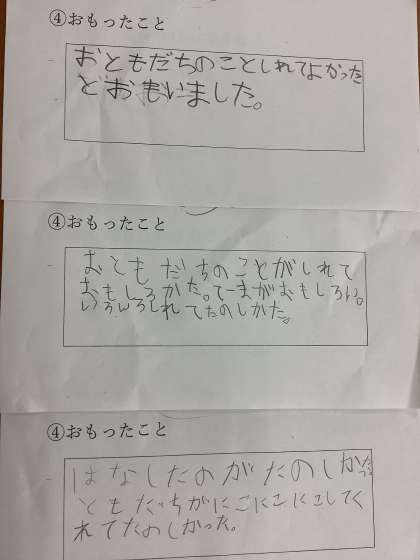 ④おもったこと
おともだちのことしれてよかった
とおもいました。
④おもったこと
おともだちのことがしれて
おもしろかた。てーまがおもしろい。
いろんろしれてたのしかた。
④おもったこと
はなしたのがたのしかった
ともだっちがにこにこにこしてく
れてたのしかった。